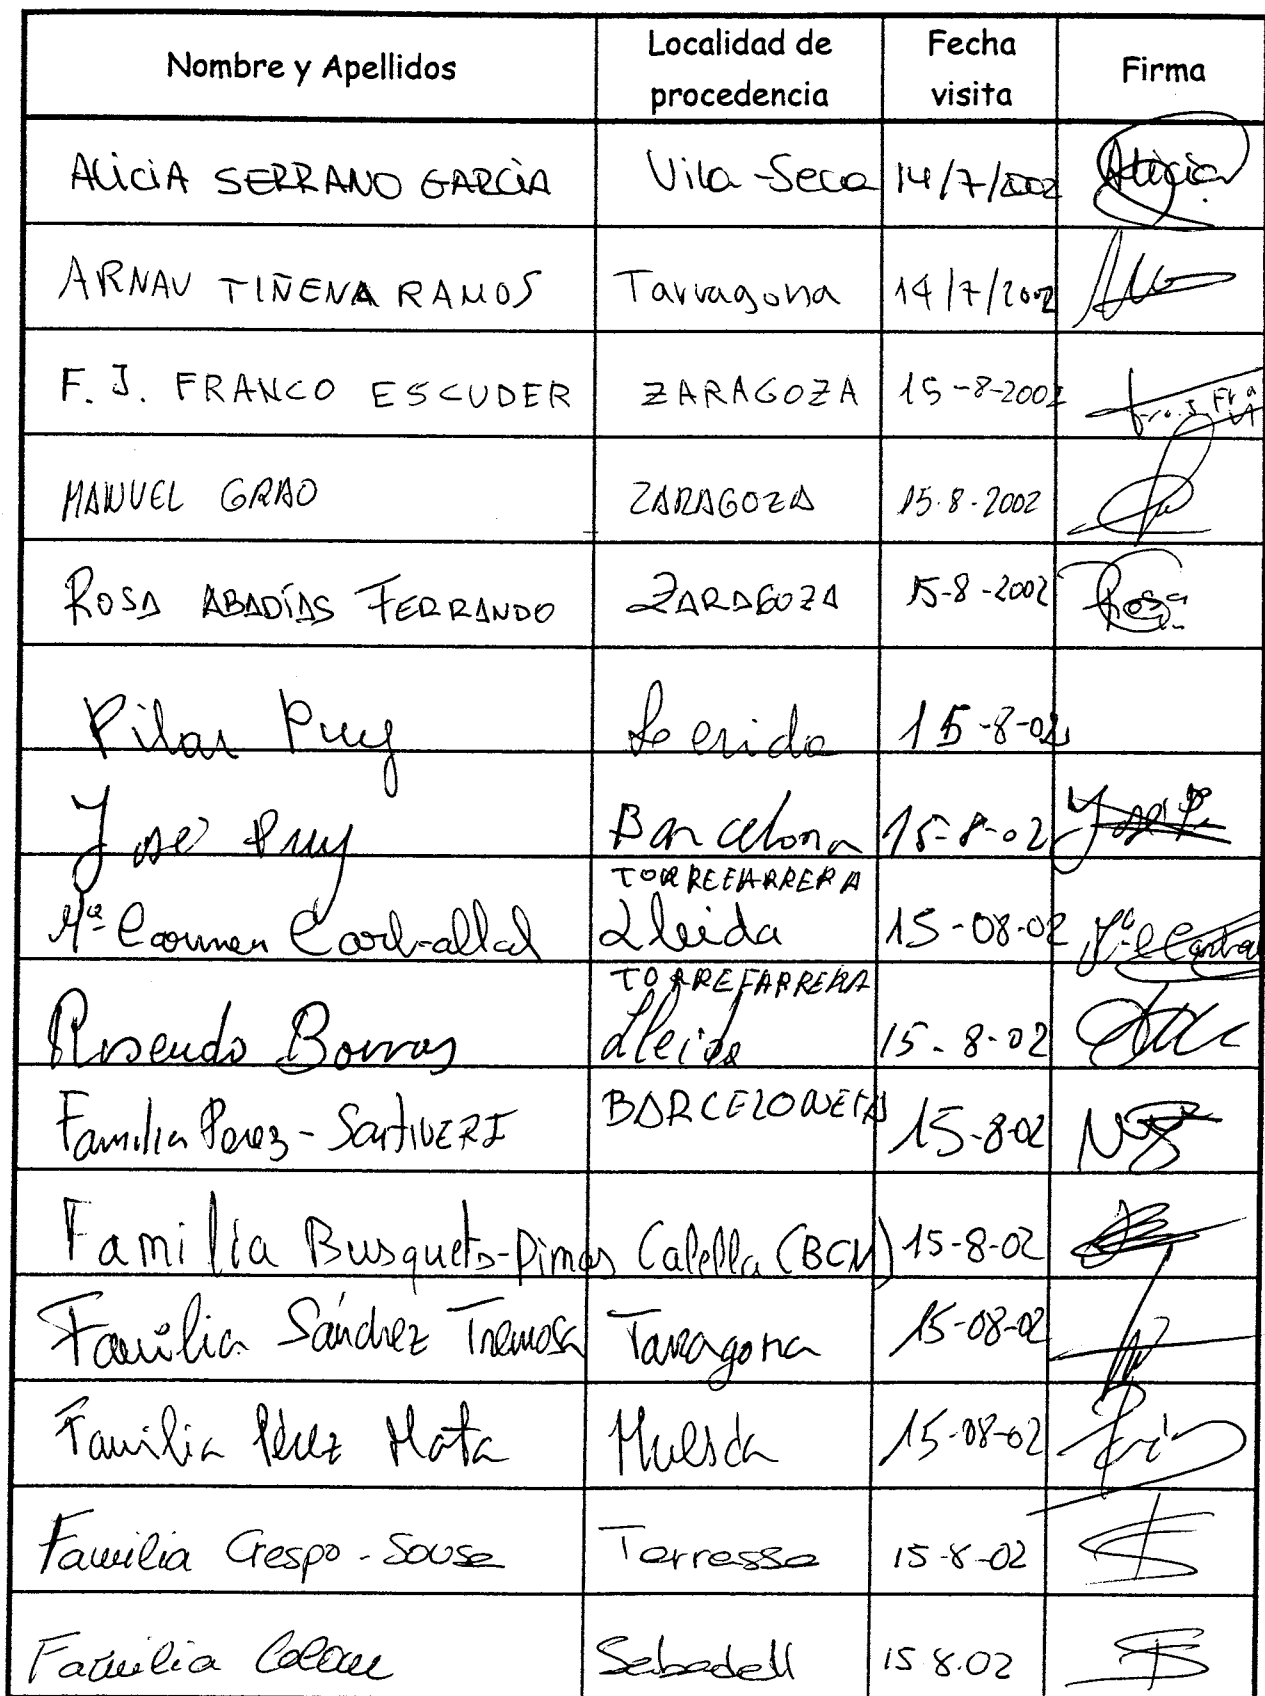 Nombre y Apellidos Localidad de procedencia Fecha visita Firma
ALICIA SERRANO GARCÍA Vila-Seca 14/7/2002 Alicia
ARNAU TIÑENA RAMOS Tarragona 14/7/2002
F. J. FRANCO ESCUDER ZARAGOZA 15-8-2002
MANUEL GRAO ZARAGOZA 15.8.2002
ROSA ABADÍAS FERRANDO ZARAGOZA 15-8-2002 Rosa
Pilar Puy Lerida 15-8-02
José Puy Barcelona 15-8-02 José P.
TORREFARRERA
Mª Carmen Carballal Lleida 15-08-02
TORREFARRERA
Rosendo Borras Lleida 15-8-02
Familia Perez-SantiVERI BARCELONETA 15-8-02
Familia Busquets-Dimas Calella (BCN) 15-8-02
Familia Sánchez Tremosa Tarragona 15-08-02
Familia Pérez Mata Huesca 15-08-02
Familia Crespo-Sousa Terrassa 15-8-02
Familia Colom Sabadell 15.8.02